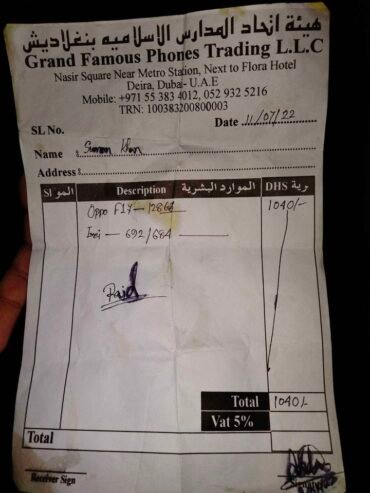 هيئة اتحاد المدارس الاسلاميه بنغلاديش
Grand Famous Phones Trading L.L.C
Nasir Square Near Metro Station, Next to Flora Hotel
Deira, Dubai- U.A.E
Mobile: +971 55 383 4012, 052 932 5216
TRN: 100383200800003
SL No. Date 11/07/22
Name : Suman Khan
Address:
المو Sl Description الموارد البشرية DHS رية
Oppo F17 — 1040/-
Imei — 692/684
Paid
Total 1040/-
Vat 5%
Total
Receiver Sign